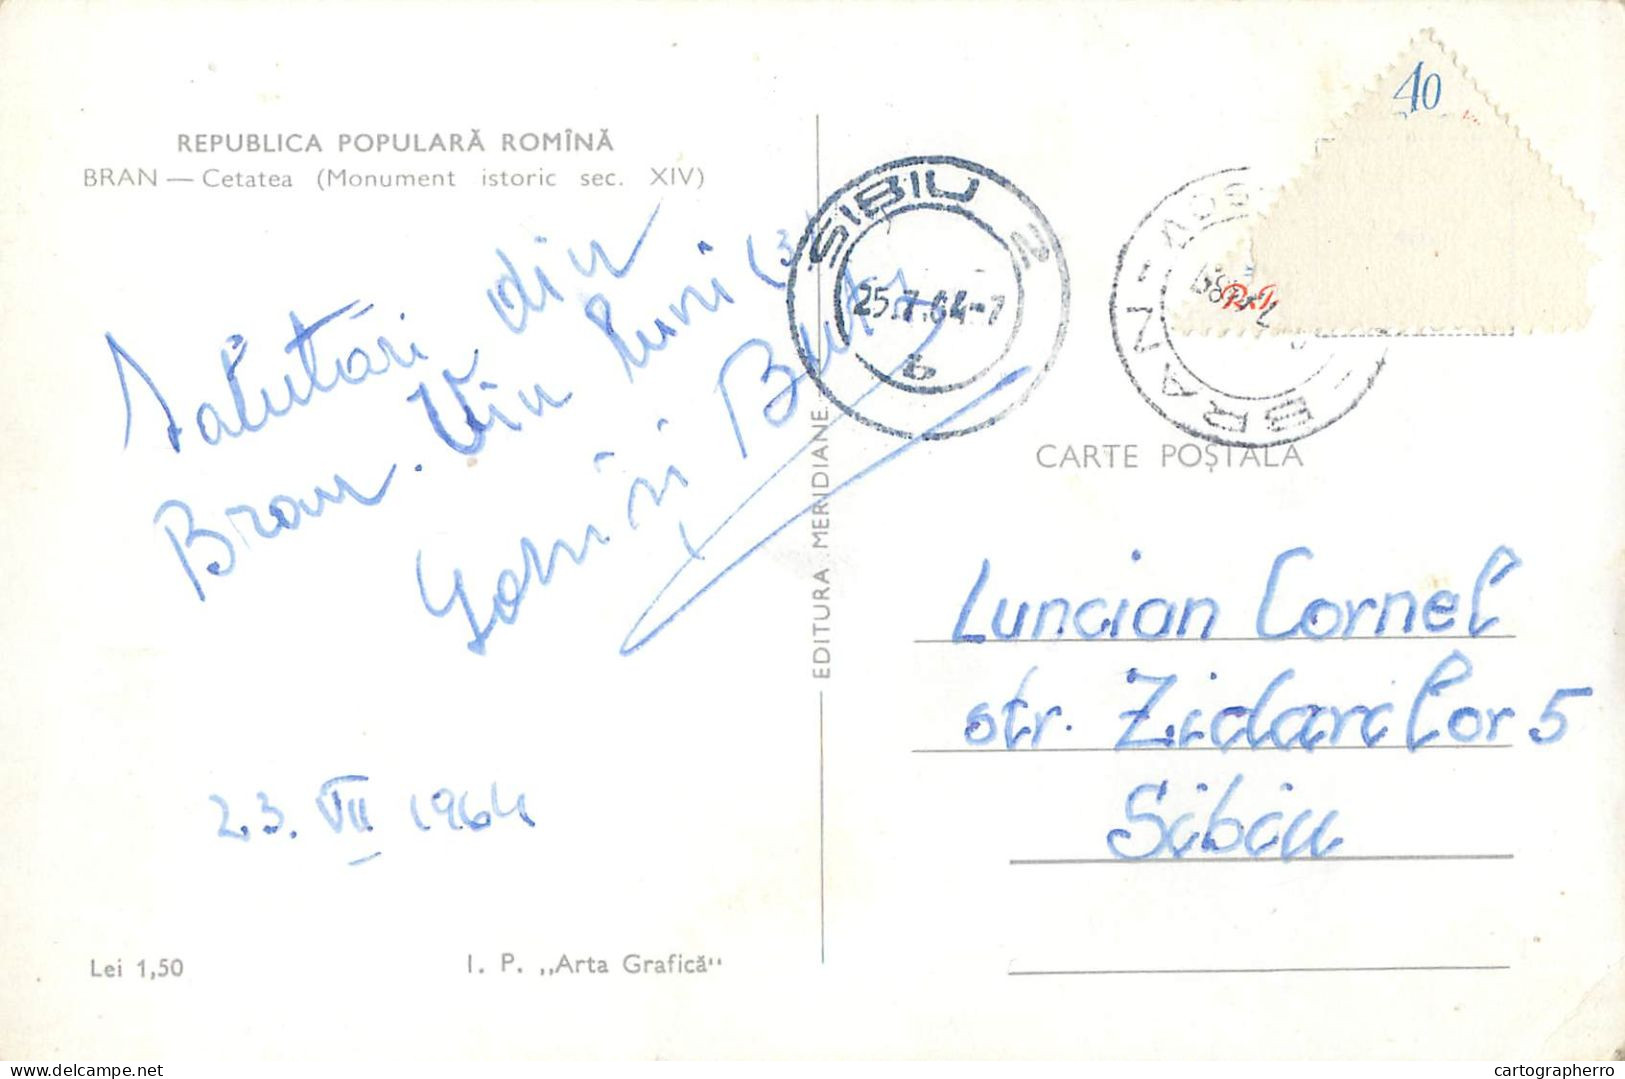 REPUBLICA POPULARĂ ROMÎNĂ
BRAN — Cetatea (Monument istoric sec. XIV)
Salutări din
Bran. Vin luni (3
23. VII 1964
Lei 1,50
I. P. „Arta Grafică"
EDITURA MERIDIANE
SIBIU 2
25.7.64-7
b
BRAN
40
CARTE POȘTALĂ
Luncian Cornel
str. Zidarilor 5
Sibiu
delcampe.net
cartographerro